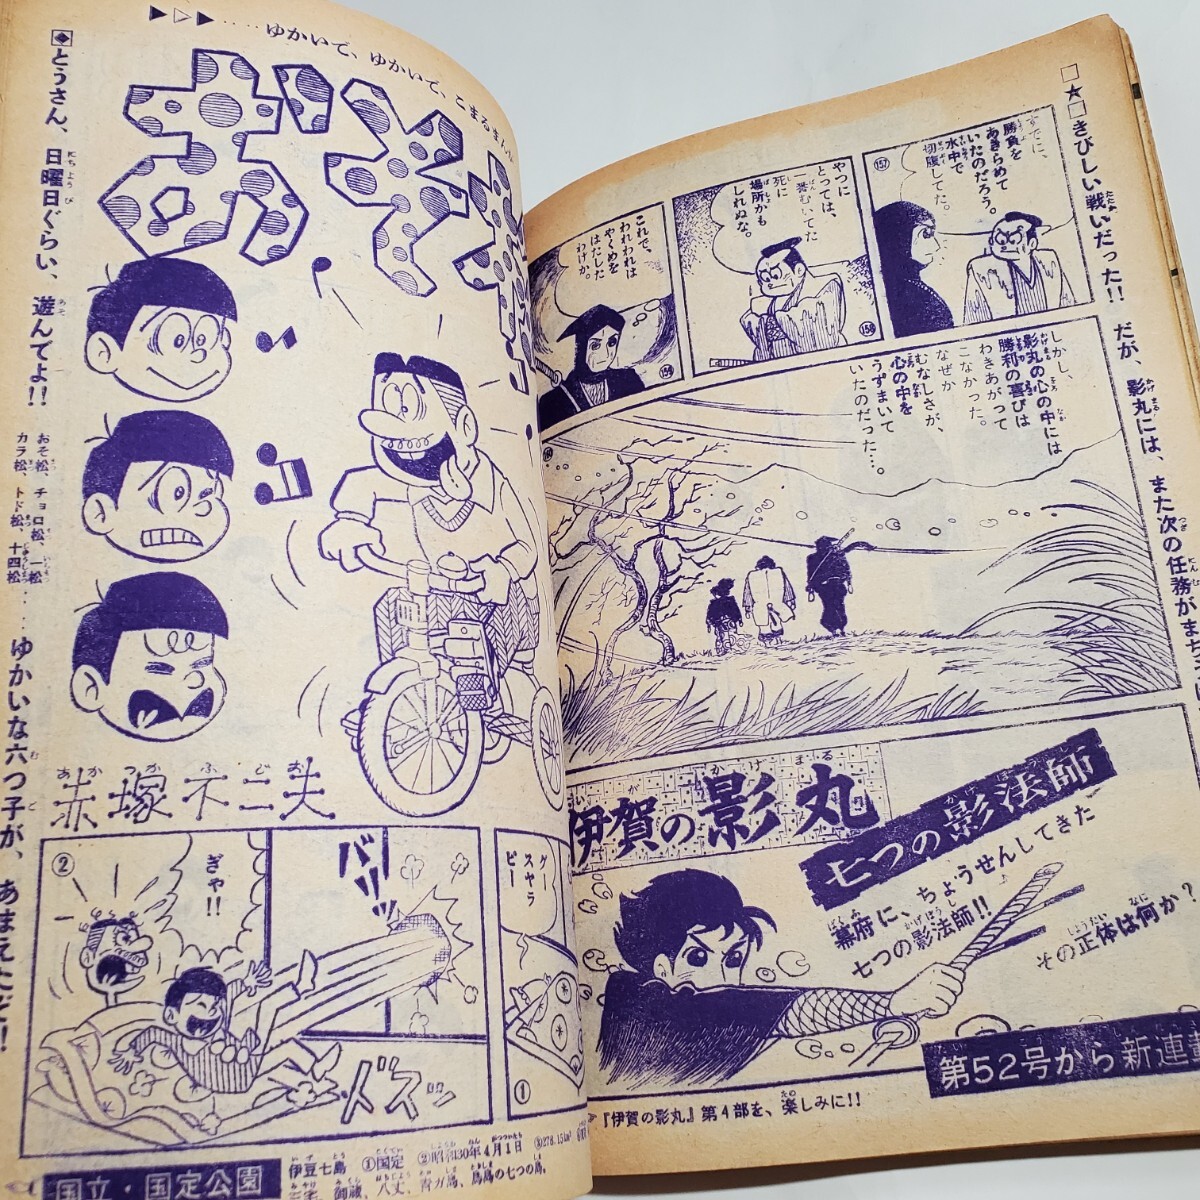 □★□きびしい戦いだった!! だが、影丸には、また次の任務がまち
すでに、
勝負を
あきらめて
いたのだろう。
水中で
切腹してた。
157
やつに
とっては、
一番むいてた
死に
場所かも
しれぬな。
158
これで、
われわれは
やくめを
はたした
わけか。
159
しかし、
影丸の心の中には
勝利の喜びは
わきあがって
こなかった。
なぜか
むなしさが、
心の中を
うずまいて
いたのだった…。
伊賀の影丸
七つの影法師
幕府に、ちょうせんしてきた
七つの影法師!!
その正体は何か?
第52号から新連載
『伊賀の影丸』第4部を、楽しみに!!
▶▷▶‥‥ゆかいで、ゆかいで、こまるまんが
おそ松
とうさん、日曜日ぐらい、遊んでよ!!
おそ松、チョロ松、一松
カラ松、トド松、十四松‥‥
ゆかいな六つ子が、あまえたぞ!
赤塚不二夫
グー
スヤラ
ピー
①
②
ぎゃ!!
バリッ
ドズッ
国立・国定公園
伊豆七島 ①国定 ②昭和30年4月1日 ③278.15km²
三宅、御蔵、八丈、青ガ島、鳥島の七つの島。